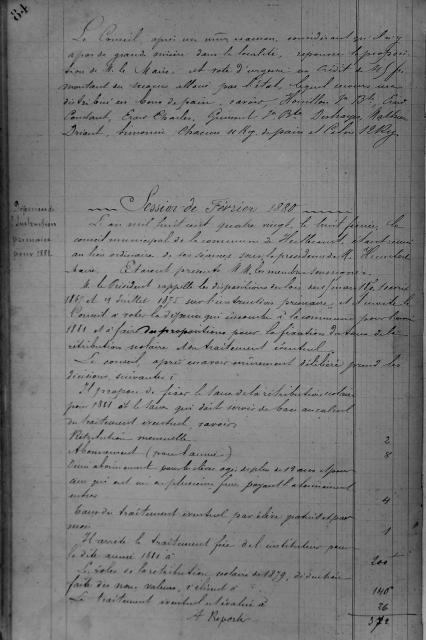 84
Le Conseil, après un mûr examen, considérant qu'il n'y
a pas de grande misère dans la localité, repousse la proposi-
tion de M. le Maire, et vote d'urgence un Crédit de 45 f.
montant du secours alloué par l'État, lequel secours sera
distribué en bons de pain, savoir,
Constant, Charles,
Driant, chacun 10 Kg. de pain et 12 Kg.
Session de Février 1880
Dépenses de
l'Instruction
primaire
pour 1881
L'an mil huit cent quatre vingt, le huit février, le
conseil municipal de la commune de s'est réuni
au lieu ordinaire de ses séances sous la présidence de M.
Maire. Étaient présents M.M. les membres soussignés.
M. le Président rappelle les dispositions des lois des 15 mars 1850,
1867 et 19 Juillet 1875 sur l'instruction primaire, et invite le
Conseil à voter la dépense qui incombe à la commune pour l'année
1881 et à faire des propositions pour la fixation du taux de la
rétribution scolaire et du traitement éventuel.
Le conseil, après en avoir mûrement délibéré prend les
décisions suivantes :
Il propose de fixer le taux de la rétribution scolaire
pour 1881 et le taux qui doit servir de base au calcul
du traitement éventuel, savoir
Rétribution mensuelle 2
Abonnement (pour l'année) 8
Demi abonnement pour les élèves âgés de plus de 12 ans et pour
ceux qui ont un ou plusieurs frères payant l'abonnement
entier 4
Taux du traitement éventuel par élève gratuit et par
mois 1
Il arrête le traitement fixe de l'instituteur pour
la dite année 1881 à 200
Le rôle de la rétribution scolaire de 1879, déduction
faite des non valeurs, s'élevait à 146
Le traitement éventuel est évalué à 26
A Reporter 372